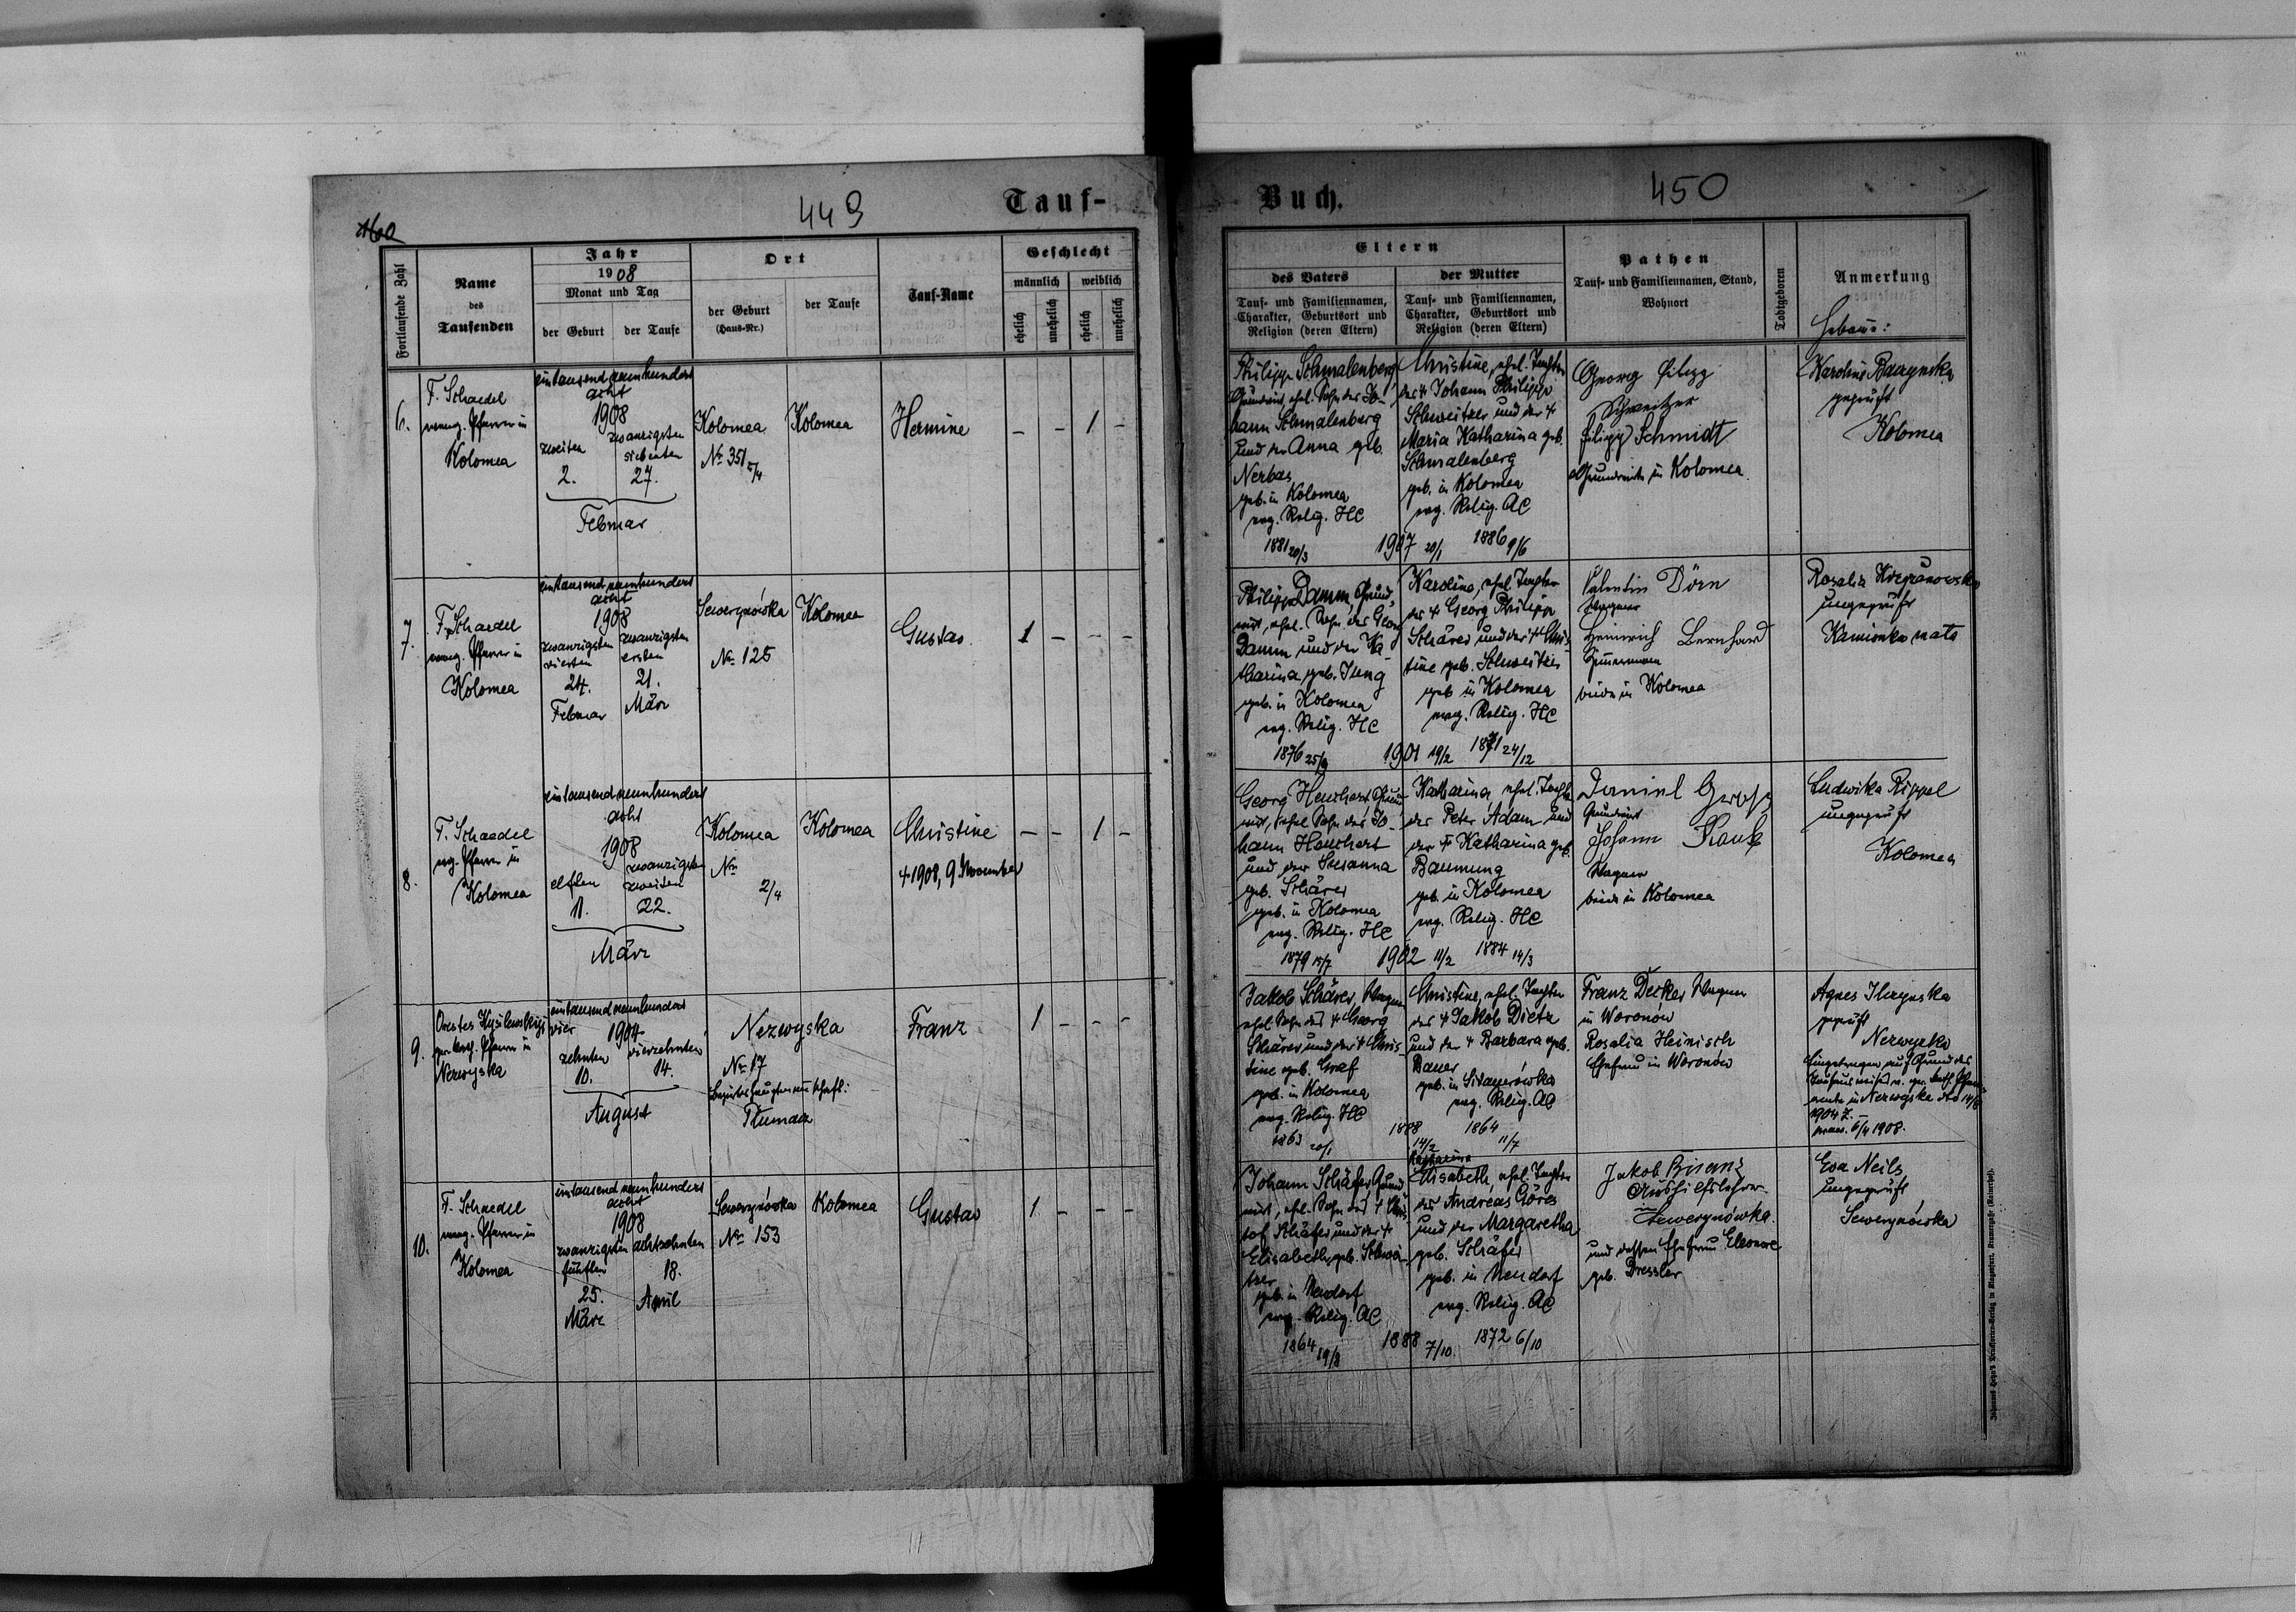 160
449
Tauf-
Fortlaufende Zahl
Name
des
Taufenden
Jahr
1908
Monat und Tag
der Geburt
der Taufe
Ort
der Geburt
(Haus-Nr.)
der Taufe
Tauf-Name
Geschlecht
männlich
weiblich
ehelich
unehelich
ehelich
unehelich
6.
F. Schaedel
evang. Pfarrer in
Kolomea
eintausend neunhundert
acht
1908
zweiten
2.
zwanzigsten
siebenten
27.
Februar
Kolomea
No 351 5/4
Kolomea
Hermine
– – 1 –
7.
F. Schaedel
evang. Pfarrer in
Kolomea
eintausend neunhundert
acht
1908
zwanzigsten
vierten
24.
Februar
zwanzigsten
ersten
21.
März
Sewerynówka
No 125
Kolomea
Gustav.
1 – – –
8.
F. Schaedel
evg. Pfarrer in
Kolomea
eintausend neunhundert
acht
1908
elften
11.
zwanzigsten
zweiten
22.
März
Kolomea
No
2/4
Kolomea
Christine
+ 1908, 9. November
– – 1 –
9.
Orestes Kysilewskyj
gr. kath. Pfarrer in
Nezwyska
eintausend neunhundert
vier 1904
zehnten
10.
vierzehnten
14.
August
Nezwyska
No 17
Bezirkshauptmannschaft:
Tlumacz
Franz
1 – – –
10.
F. Schaedel
evang. Pfarrer in
Kolomea
eintausend neunhundert
acht
1908
zwanzigsten
fünften
25.
März
achtzehnten
18.
April
Sewerynówka
No 153
Kolomea
Gustav
1 – – –
Buch.
450
Eltern
des Vaters
Tauf- und Familiennamen,
Charakter, Geburtsort und
Religion (deren Eltern)
der Mutter
Tauf- und Familiennamen,
Charakter, Geburtsort und
Religion (deren Eltern)
Pathen
Tauf- und Familiennamen, Stand,
Wohnort
Todtgeboren
Anmerkung
Hebamme:
Philipp Schmalenberg
Grundwirt, ehel. Sohn des Jo-
hann Schmalenberg
und der Anna geb.
Nerbas
geb. in Kolomea
evg. Relig. HC
1881 20/3
1907 20/1
Christine, ehel. Tochter
des + Johann Philipp
Schweitzer und der +
Maria Katharina geb.
Schmalenberg
geb. in Kolomea
evg. Relig. AC
1886 9/6
Georg Filipp
Schweitzer
Filipp Schmidt
Grundwirte in Kolomea
geprüft
Kolomea
Philipp Damm, Grund-
wirt, ehel. Sohn des Georg
Damm und der Ka-
tharina geb. Jung
geb. in Kolomea
evg. Relig. HC
1876 25/9
1901 19/2
Karoline, ehel. Tochter
des + Georg Philipp
Schärer und der + Chri-
stine geb. Schweitzer
geb. in Kolomea
evang. Relig. HC
24/12
Valentin Dörn
Wagner
Heinrich Bernhard
Zimmermann
beide in Kolomea
ungeprüft
Kamionka mała
Georg Heuchert Grund-
wirt, ehel. Sohn des Jo-
hann Heuchert
und der Susanna
geb. Schärer
geb. in Kolomea
evg. Relig. HC
1879 15/7
1902 11/2
Katharina, ehel. Tochter
des Peter Adam und
der + Katharina geb.
Baumung
geb. in Kolomea
evg. Relig. HC
1884 14/3
Daniel
Grundwirt
Johann
Wagner
beide in Kolomea
Ludwika Rippel
ungeprüft
Kolomea
Jakob Schärer, Wagner
ehel. Sohn des + Georg
Schärer und der + Chris-
tine geb. Graf
geb. in Kolomea
evg. Relig. HC
1863 20/1
1888
14/2
Christine, ehel. Tochter
des + Jakob Dietz
und der + Barbara geb.
Bauer
geb. in Sitauerówka
evg. Relig. AC
1864
11/7
Franz Decker Wagner
in Woronów
Rosalia Heinisch
Ehefrau in Woronów
Agnes Ilczynska
geprüft
Nezwyska
Eingetragen auf Grund des
in Nezwyska dto 14/8
1904 Z. –
6/4 1908.
Johann Schäfer Grund-
wirt, ehel. Sohn des + Chri-
stof Schäfer und der +
Elisabeth geb. Schwei-
tzer
geb. in Neudorf
evg. Relig. AC
1864 19/8
1888 7/10.
Katharina
Elisabeth, ehel. Tochter
des Andreas Göres
und der Margaretha
geb. Schäfer
geb. in Neudorf
evg. Relig. AC
1872 6/10
Jakob Bisanz
Aushilfslehrer
Sewerynówka.
und dessen Ehefrau Eleonore
geb. Dressler
Eva Neils
ungeprüft
Sewerynówka